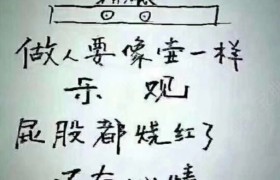 做人要像壶一样
乐观
屁股都烧红了